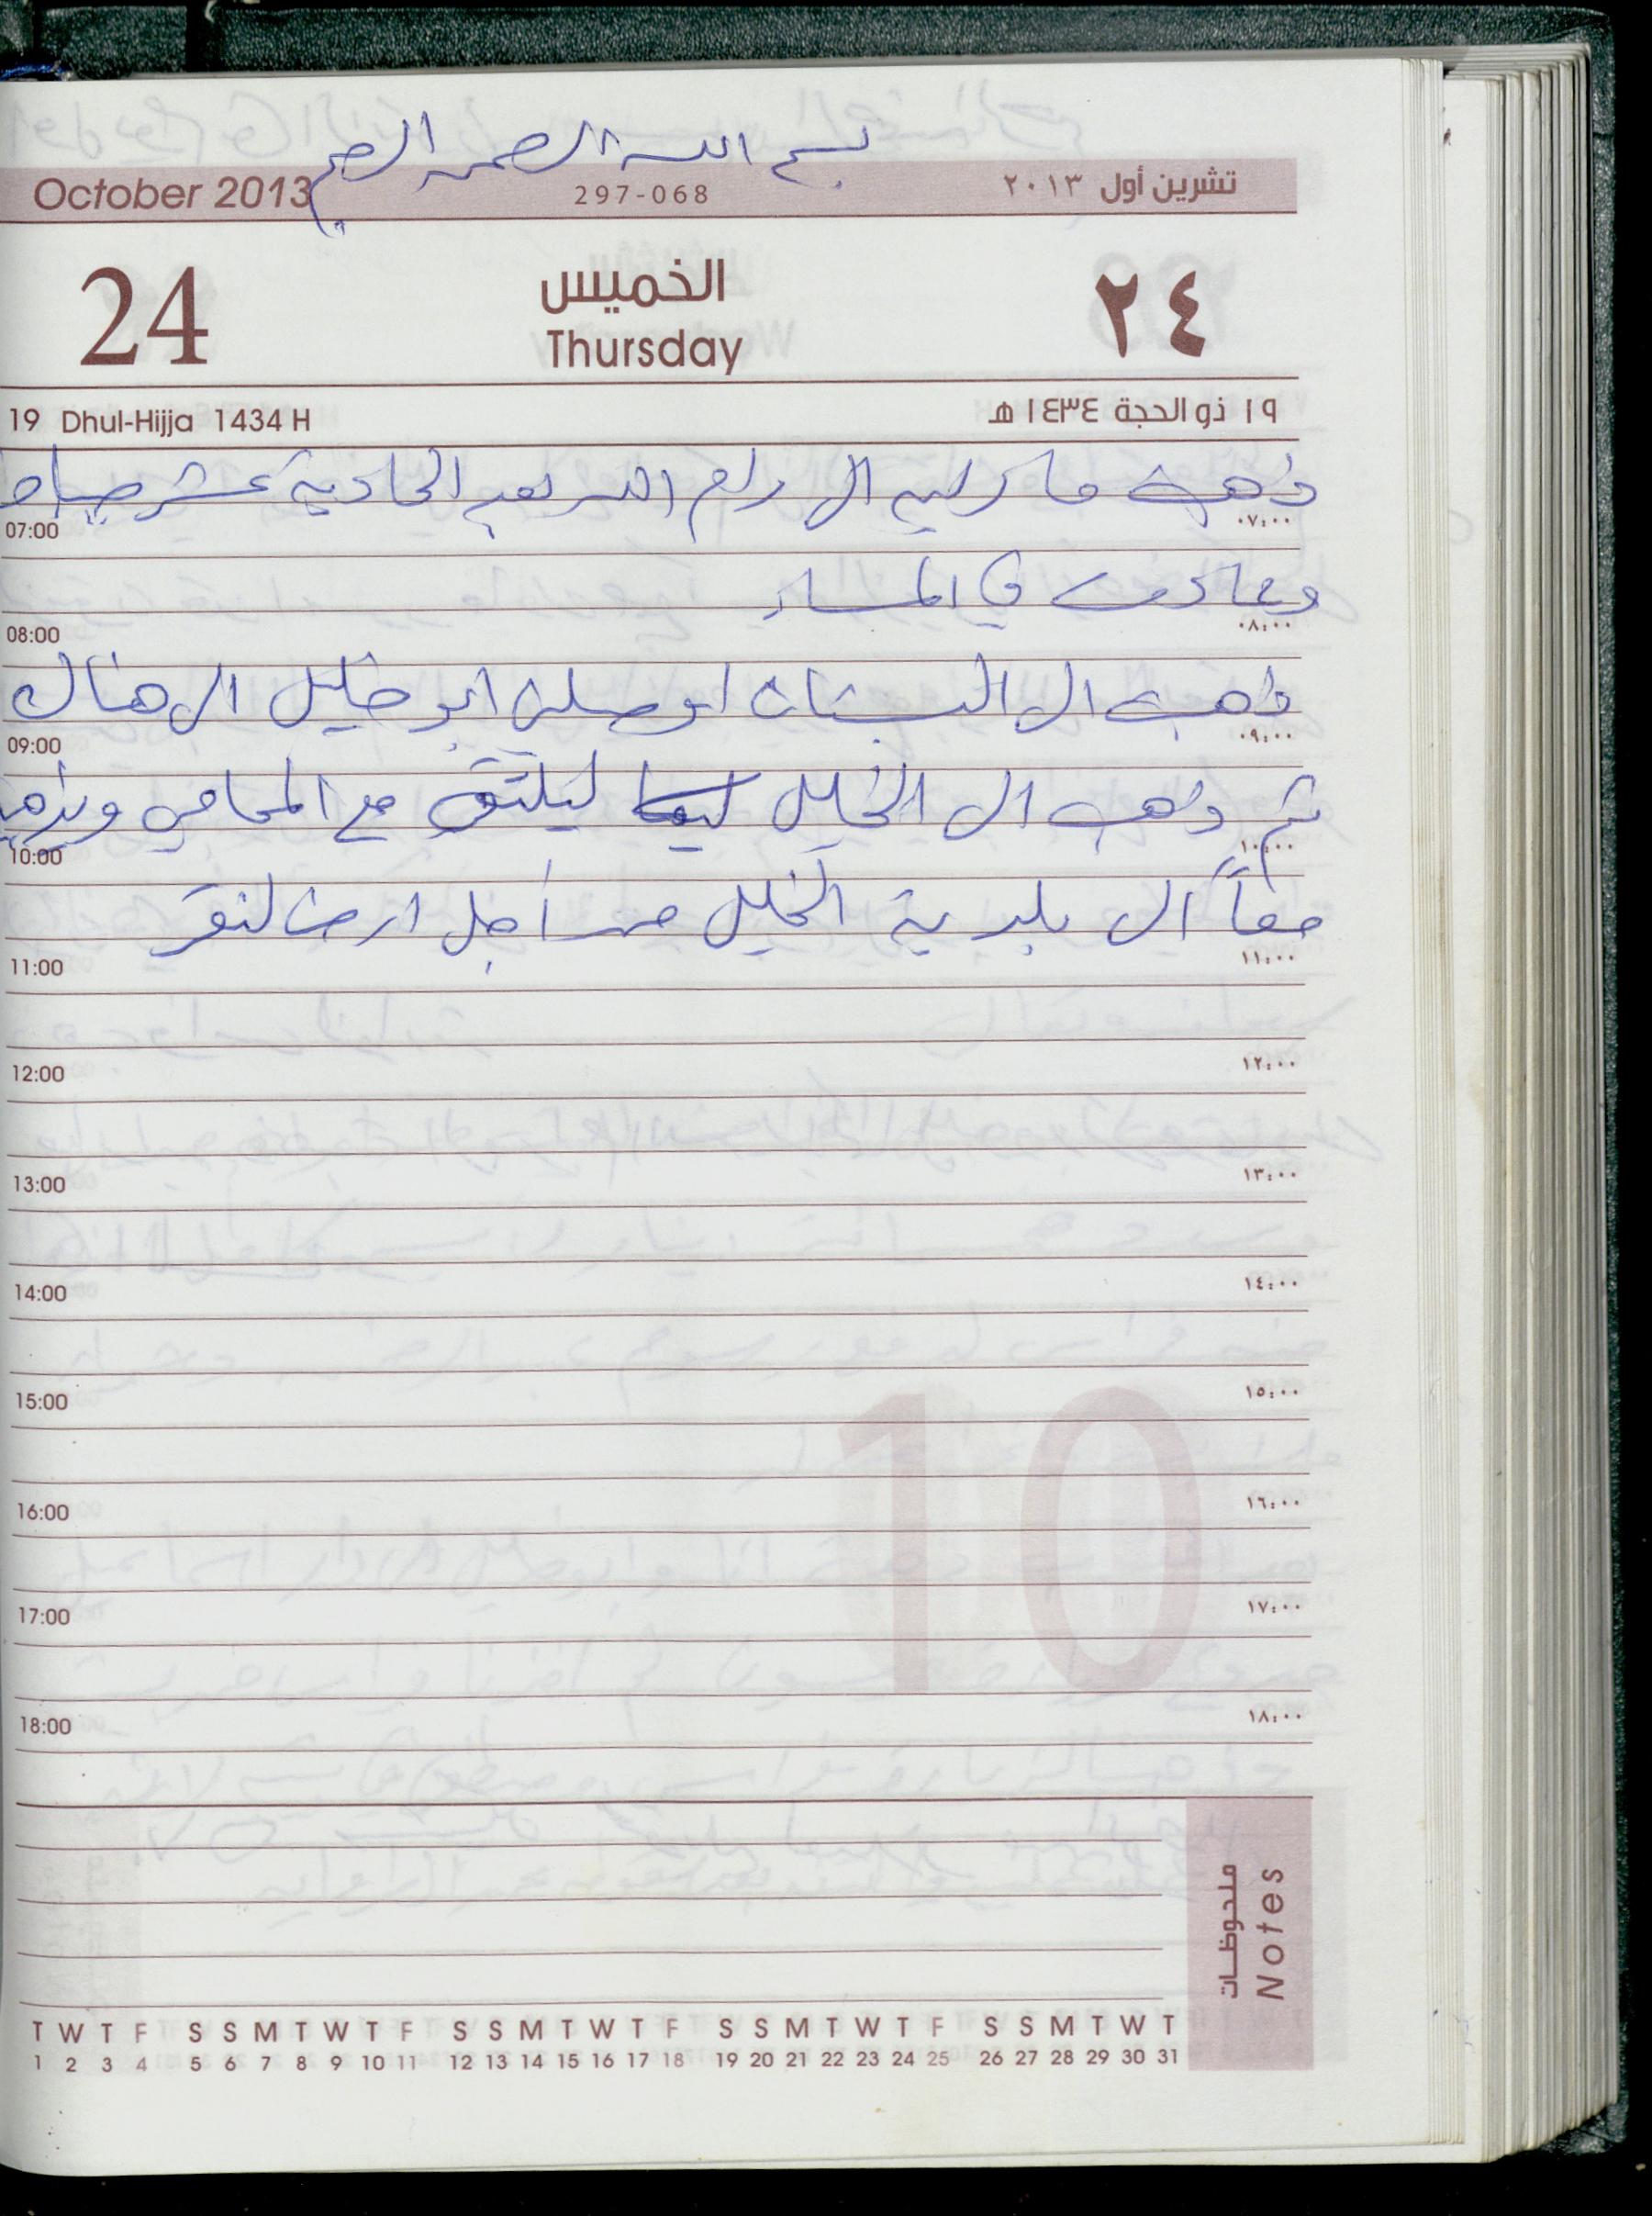 بسم الله الرحمن الرحيم
October 2013 297-068 تشرين أول ٢٠١٣
24 الخميس ٢٤
Thursday
19 Dhul-Hijja 1434 H ١٩ ذو الحجة ١٤٣٤ هـ
ذهبت ماكرليه الى رام الله بعد الحادية عشر صباحا
07:00 ٠٧:٠٠
وعادت في المساء
08:00 ٠٨:٠٠
ذهبت الى البستان اوصلني ابو خليل الى هناك
09:00 ٠٩:٠٠
ثم ذهب الى الخليل ليلتقي مع المحامي
10:00 ١٠:٠٠
معاً الى بلدية الخليل من أجل ارض لنقر
11:00 ١١:٠٠
12:00 ١٢:٠٠
13:00 ١٣:٠٠
14:00 ١٤:٠٠
15:00 ١٥:٠٠
10
16:00 ١٦:٠٠
17:00 ١٧:٠٠
18:00 ١٨:٠٠
ملحوظات
Notes
T W T F S S M T W T F S S M T W T F S S M T W T F S S M T W T
1 2 3 4 5 6 7 8 9 10 11 12 13 14 15 16 17 18 19 20 21 22 23 24 25 26 27 28 29 30 31